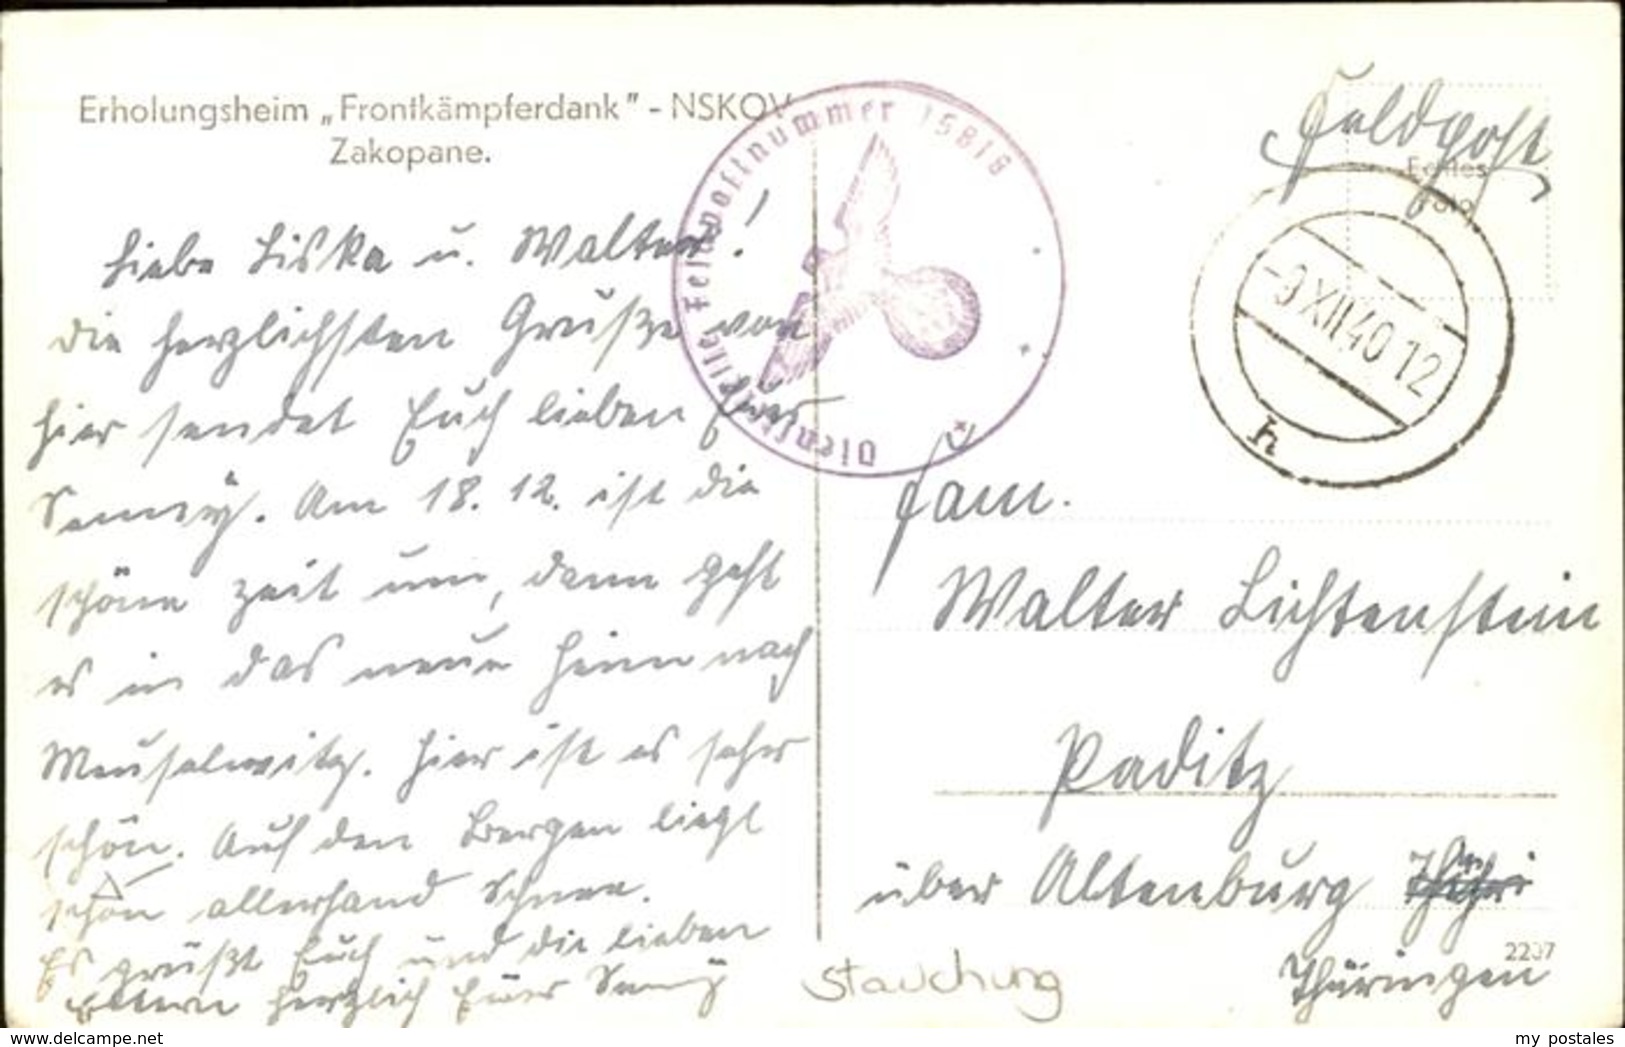 Erholungsheim „Frontkämpferdank" - NSKOV
Zakopane.
Feldpost
Echtes
Foto
Dienststelle Feldpostnummer 15818
-9 XII 40 12
h
Liebe Liska u. Walter!
die herzlichsten Grüße von
hier sendet Euch lieben Euer
. Am 18. 12. ist die
schöne Zeit um, dann geht
es in das neue Heim nach
Meuselwitz. Hier ist es sehr
schön. Auf den Bergen liegt
schon allerhand Schnee.
Es grüßt Euch und die lieben
Eltern herzlich Euer
Fam.
Walter Lichtenstein
Paditz
über Altenburg
Thüringen
2207
Stauchung
my postales